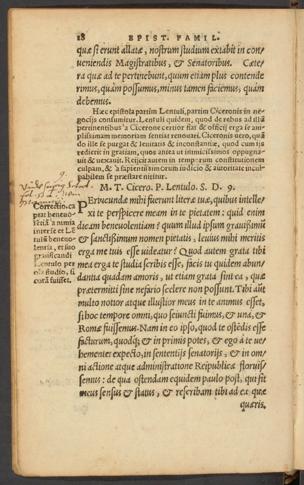 18 EPIST. FAMIL.
quæ si erunt allatæ, nostrum studium extabit in con/
ueniendis Magistratibus, & Senatoribus. Cæte/
ra quæ ad te pertinebunt, quum etiam plus contende
rimus, quàm possumus, minus tamen faciemus, quàm
debemus.
Hæc epistola partim Lentuli, partim Ciceronis in ne/
gocijs consumitur. Lentuli quidem, quod de rebus ad illũ
pertinentibus à Cicerone certior fiat & officij erga se am/
plissimam memoriam sentiat renouari. Ciceronis verò, quòd
illo se purgat & leuitatis & inconstantiæ, quòd cum ijs
redierit in gratiam, quos antea vt inimicissimos oppugna/
& vexauit. Reijcit autem in temporum constitutionem
culpam, & à sapientissimorum iudicio & autoritate incul/
pabilem se præstare nititur.
M. T. Cicero. P. Lentulo. S. D. 9.
9.
Correctio. ca
ptat beneuo/
lentiã à numi
nis
beneuo/
lentia,
gratificandi
Lentulo per
studio, si
cura fuisset.
PErucundæ mihi fuerunt literæ tuæ, quibus intelle/
xi te perspicere meam in te pietatem: quid enim
dicam beneuolentiam? quum illud ipsum grauissimũ
& sanctissimum nomen pietatis, leuius mihi meritis
erga me tuis esse uideatur? Quod autem grata tibi
mea erga te studia scribis esse, facis tu quidem abun/
dantia quadam amoris, ut etiam grata sint ea, quæ
prætermitti sine nefario scelere non possunt. Tibi aũt
multo notior atque illustior meus in te animus esset,
si hoc tempore omni, quo seiuncti fuimus, & unà, &
Romæ fuissemus. Nam in eo ipso, quod te ostẽdis esse
facturum, quodq; & in primis potes, & ego à te ue/
hementer expecto, in sententijs senatorijs, & in om/
ni actione atque administratione Reipublicæ floruis/
semus: de qua ostendam equidem paulo post, qui sit
meus sensus & status, & rescribam tibi ad ea quæ
quæris.